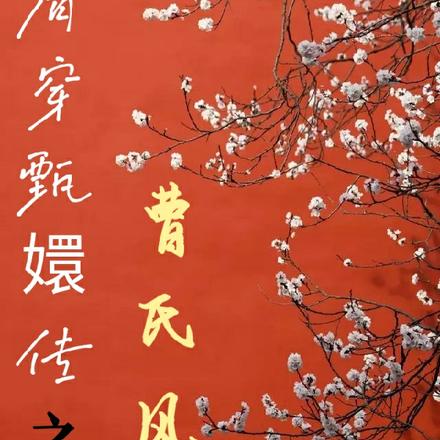 穿甄嬛传之
曹氏风